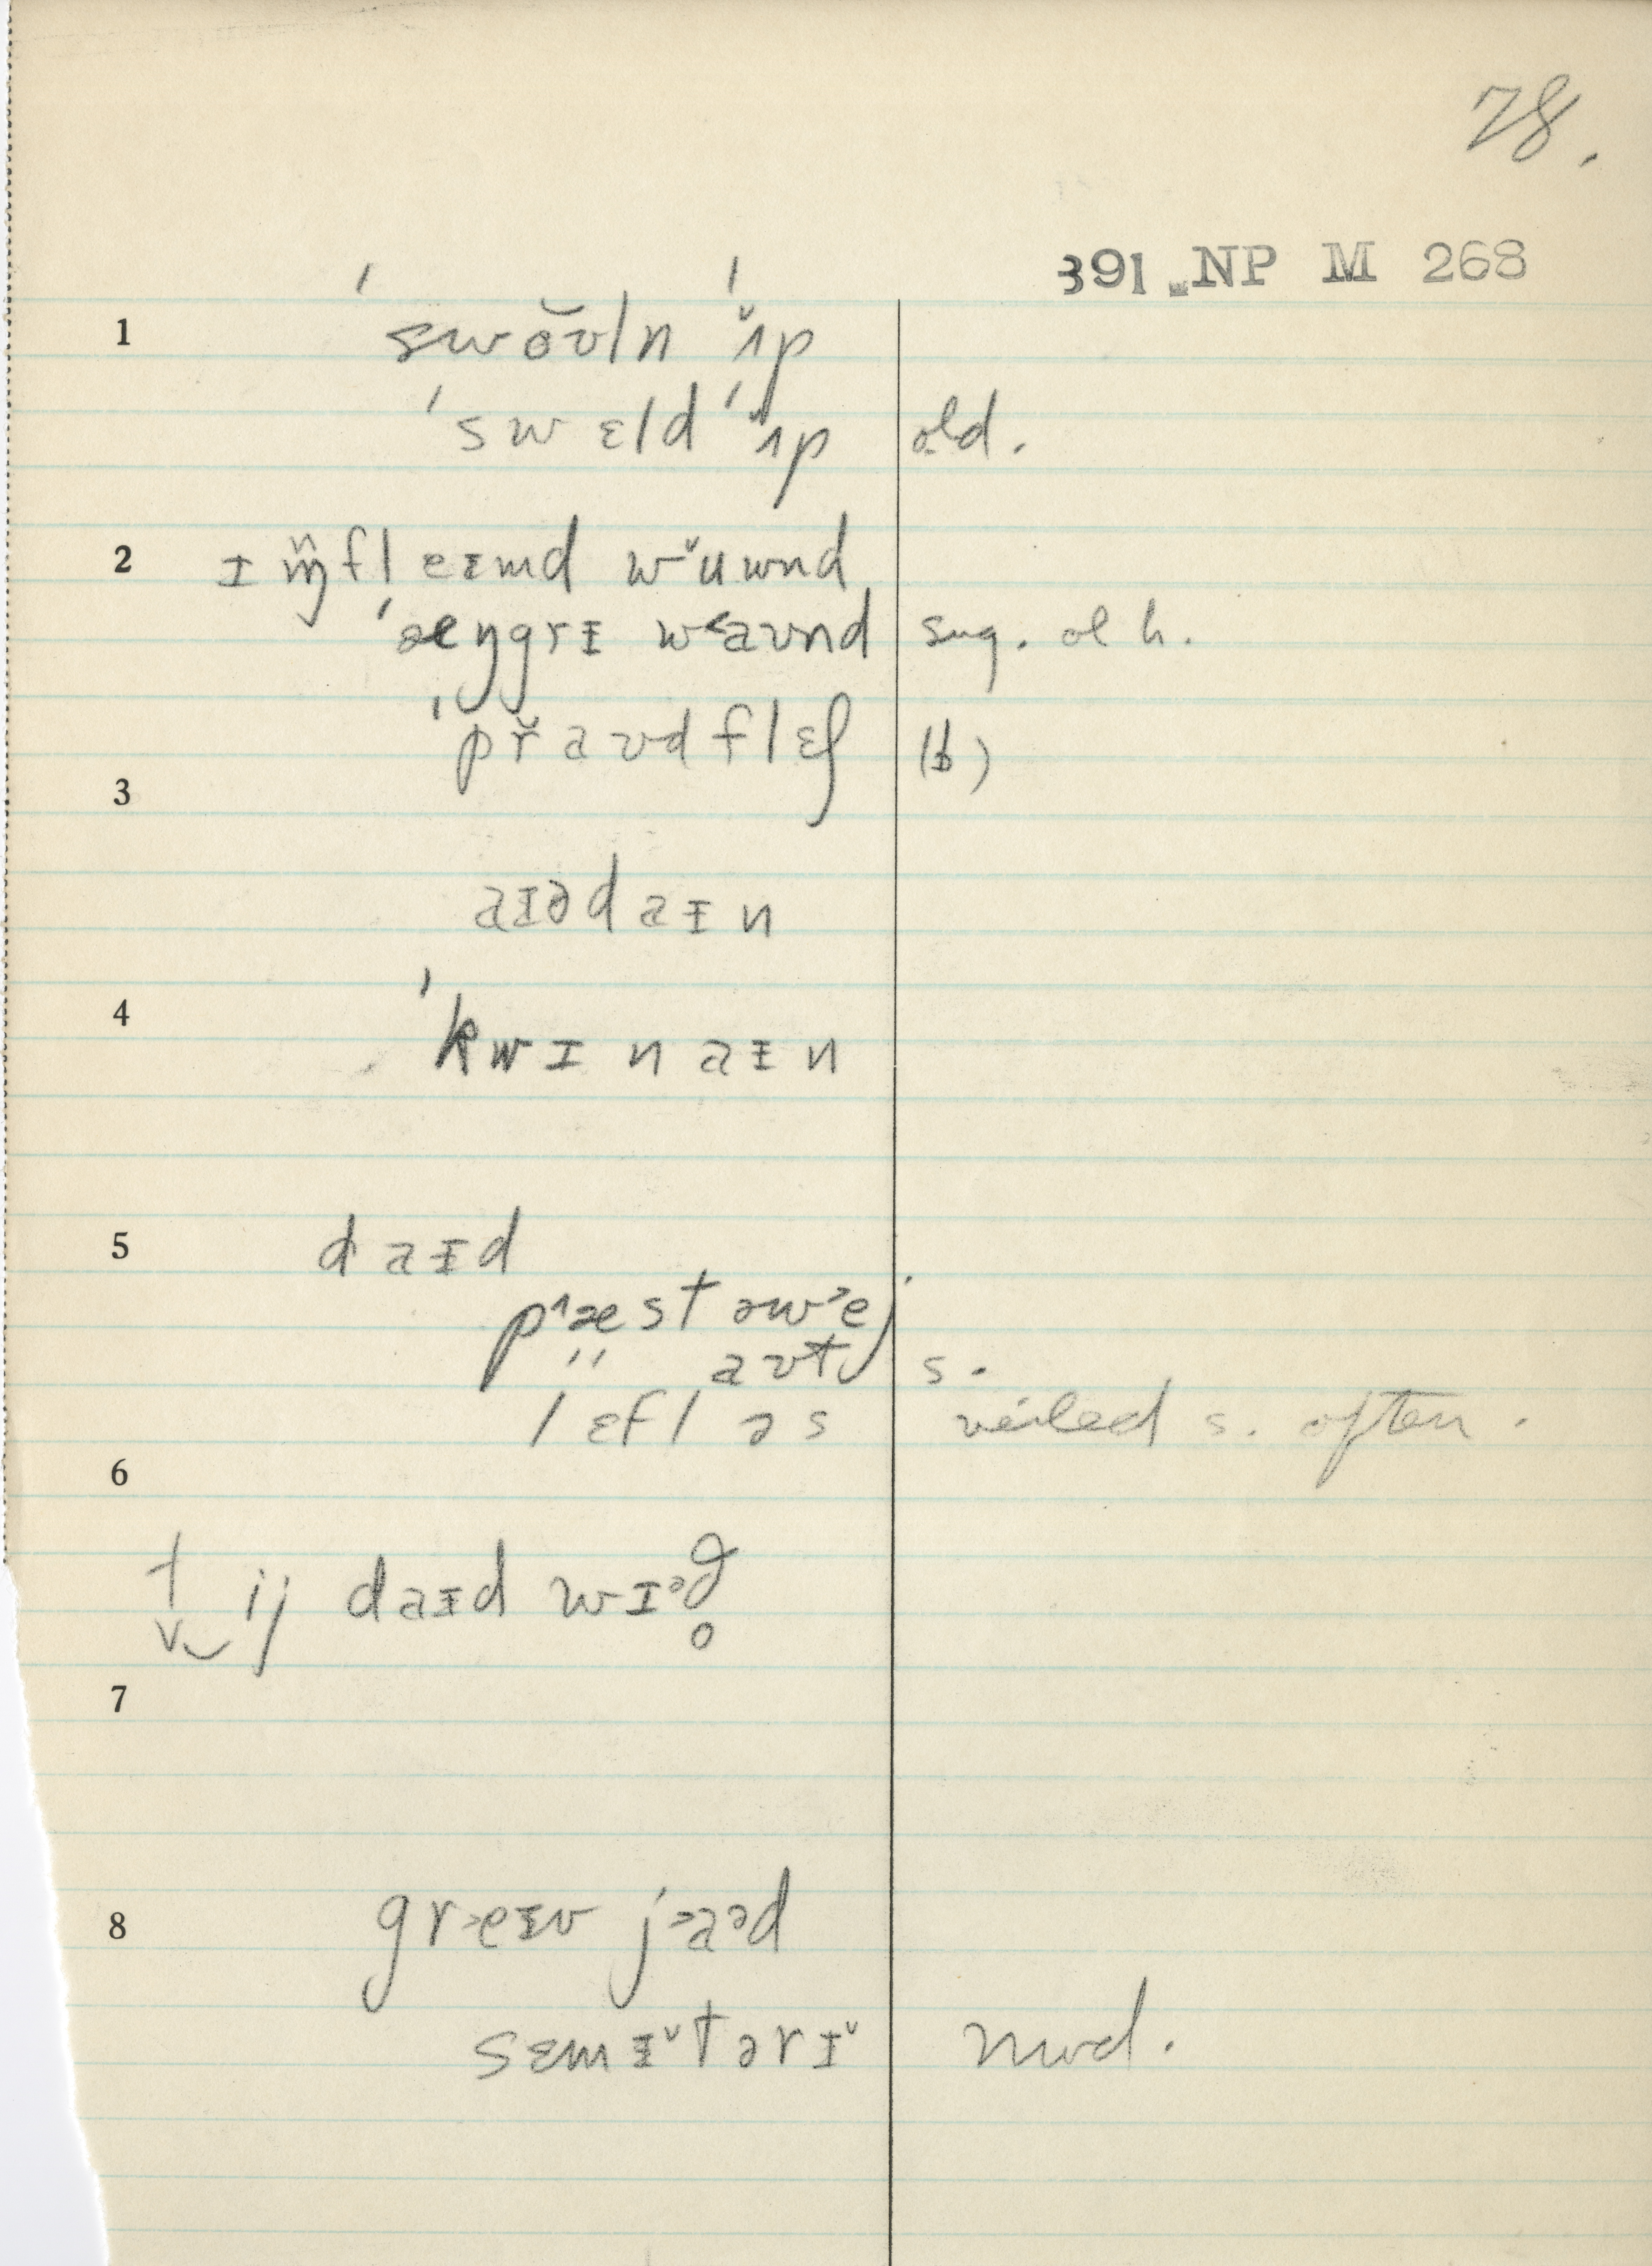 78.
391 NP M 268
1 ˈswŏʊln ˈʌ̆p
ˈswɛld ˈʌ̆p old.
2 ɪɱ̈fleɪmd wˇuwnd
ˈæŋgrɪ w<aʊnd sug. ol h.
ˈpř aʊd flɛʃ (b)
3
aɪədaɪn
4 ˈkwɪnaɪn
5 daɪd
p^æst əw>ej
" aʊt s.
6 lɛfləs veiled s. often.
† ij daɪd wɪᵊð̥
7
8 gr>eɪv j>aᵊd
sɛmɪˇtərɪˇ mod.